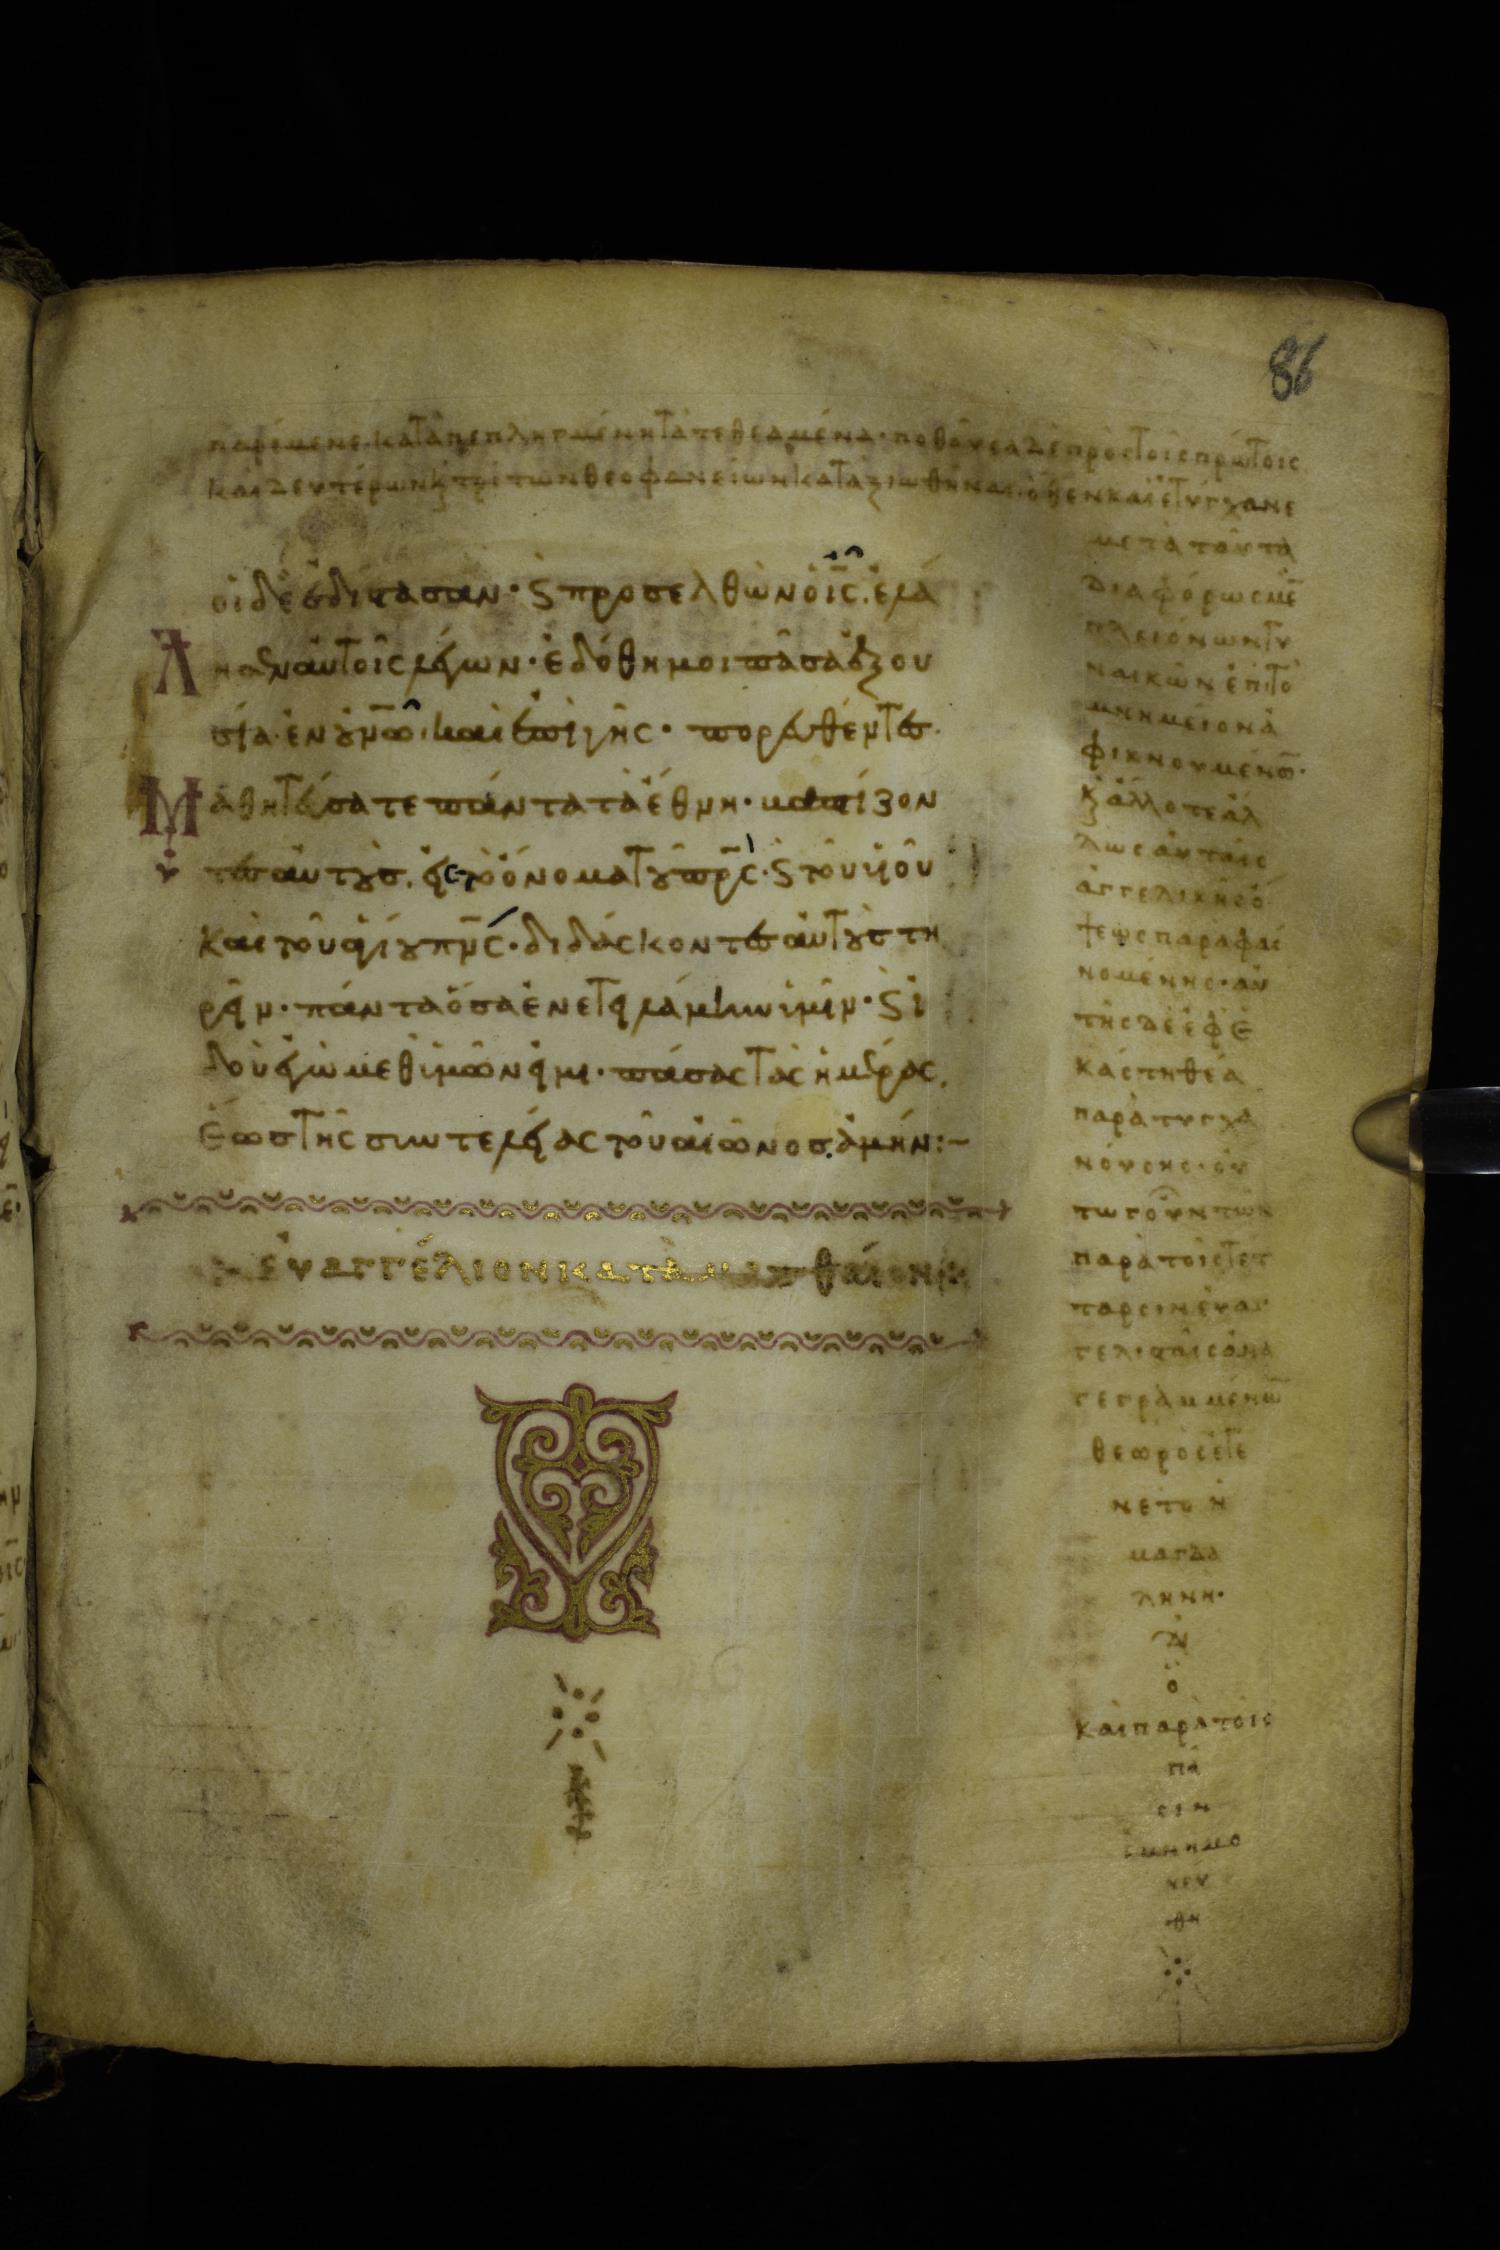 86
παρέμενε· καταπεπληγμένη τὰ τεθεαμένα· ποθοῦσα δὲ πρὸς τοῖς πρώτοις
καὶ δευτέρων κ τρίτων θεοφανειῶν καταξιωθῆναι· ὅθεν καὶ ἐτύγχανε
οἱ δὲ ἐδίστασαν· ϛ προσελθὼν ὁ ις. ἐλά
λησεν αὐτοῖς λέγων· ἐδόθη μοι πᾶσα ἐξου
σία· ἐν οὐνῶ· καὶ ἐπὶ γῆς· πορευθέντες
μαθητεύσατε πάντα τὰ ἔθνη· βαπτίζον
τες αὐτοὺς. εἰς τὸ ὄνομα τοῦ πρς· ϛ τοῦ υἱοῦ
καὶ τοῦ ἁγίου πνς· διδάσκοντες αὐτοὺς τη
ρεῖν· πάντα ὅσα ἐνετειλάμην ὑμῖν· ϛ ἰ
δοὺ ἐγὼ μεθ ὑμῶν εἰμι· πάσας τὰς ἡμέρας.
ἕως τῆς συντελείας τοῦ αἰῶνος. ἀμήν:–
εὐαγγέλιον κατὰ ματθαῖον
μετὰ ταῦτα
διαφόρως με
πλειόνων γυ
ναικῶν ἐπὶ τὸ
μνημεῖον ἀ
φικνουμένω·
κ ἄλλοτε ἄλ
λως αὐταῖς
ἀγγελικῆς ὄ
ψεως παραφαι
νομένης· αὐ
τῆς δὲ ἐφ ἑ
κάστη θέα
παρατυγχα
νούσης· οὕ
τω γοῦν τῶν
παρὰ τοῖς τέτ
ταρσιν εὐαγ
γελισταῖς ἀνα
γεγραμμένων
θεωρὸς ἐγέ
νετο ἡ
μαγδα
ληνή·
δι
ὸ
καὶ παρὰ τοῖς
πᾶ
σιν
ἐμνημο
νεύ
θη